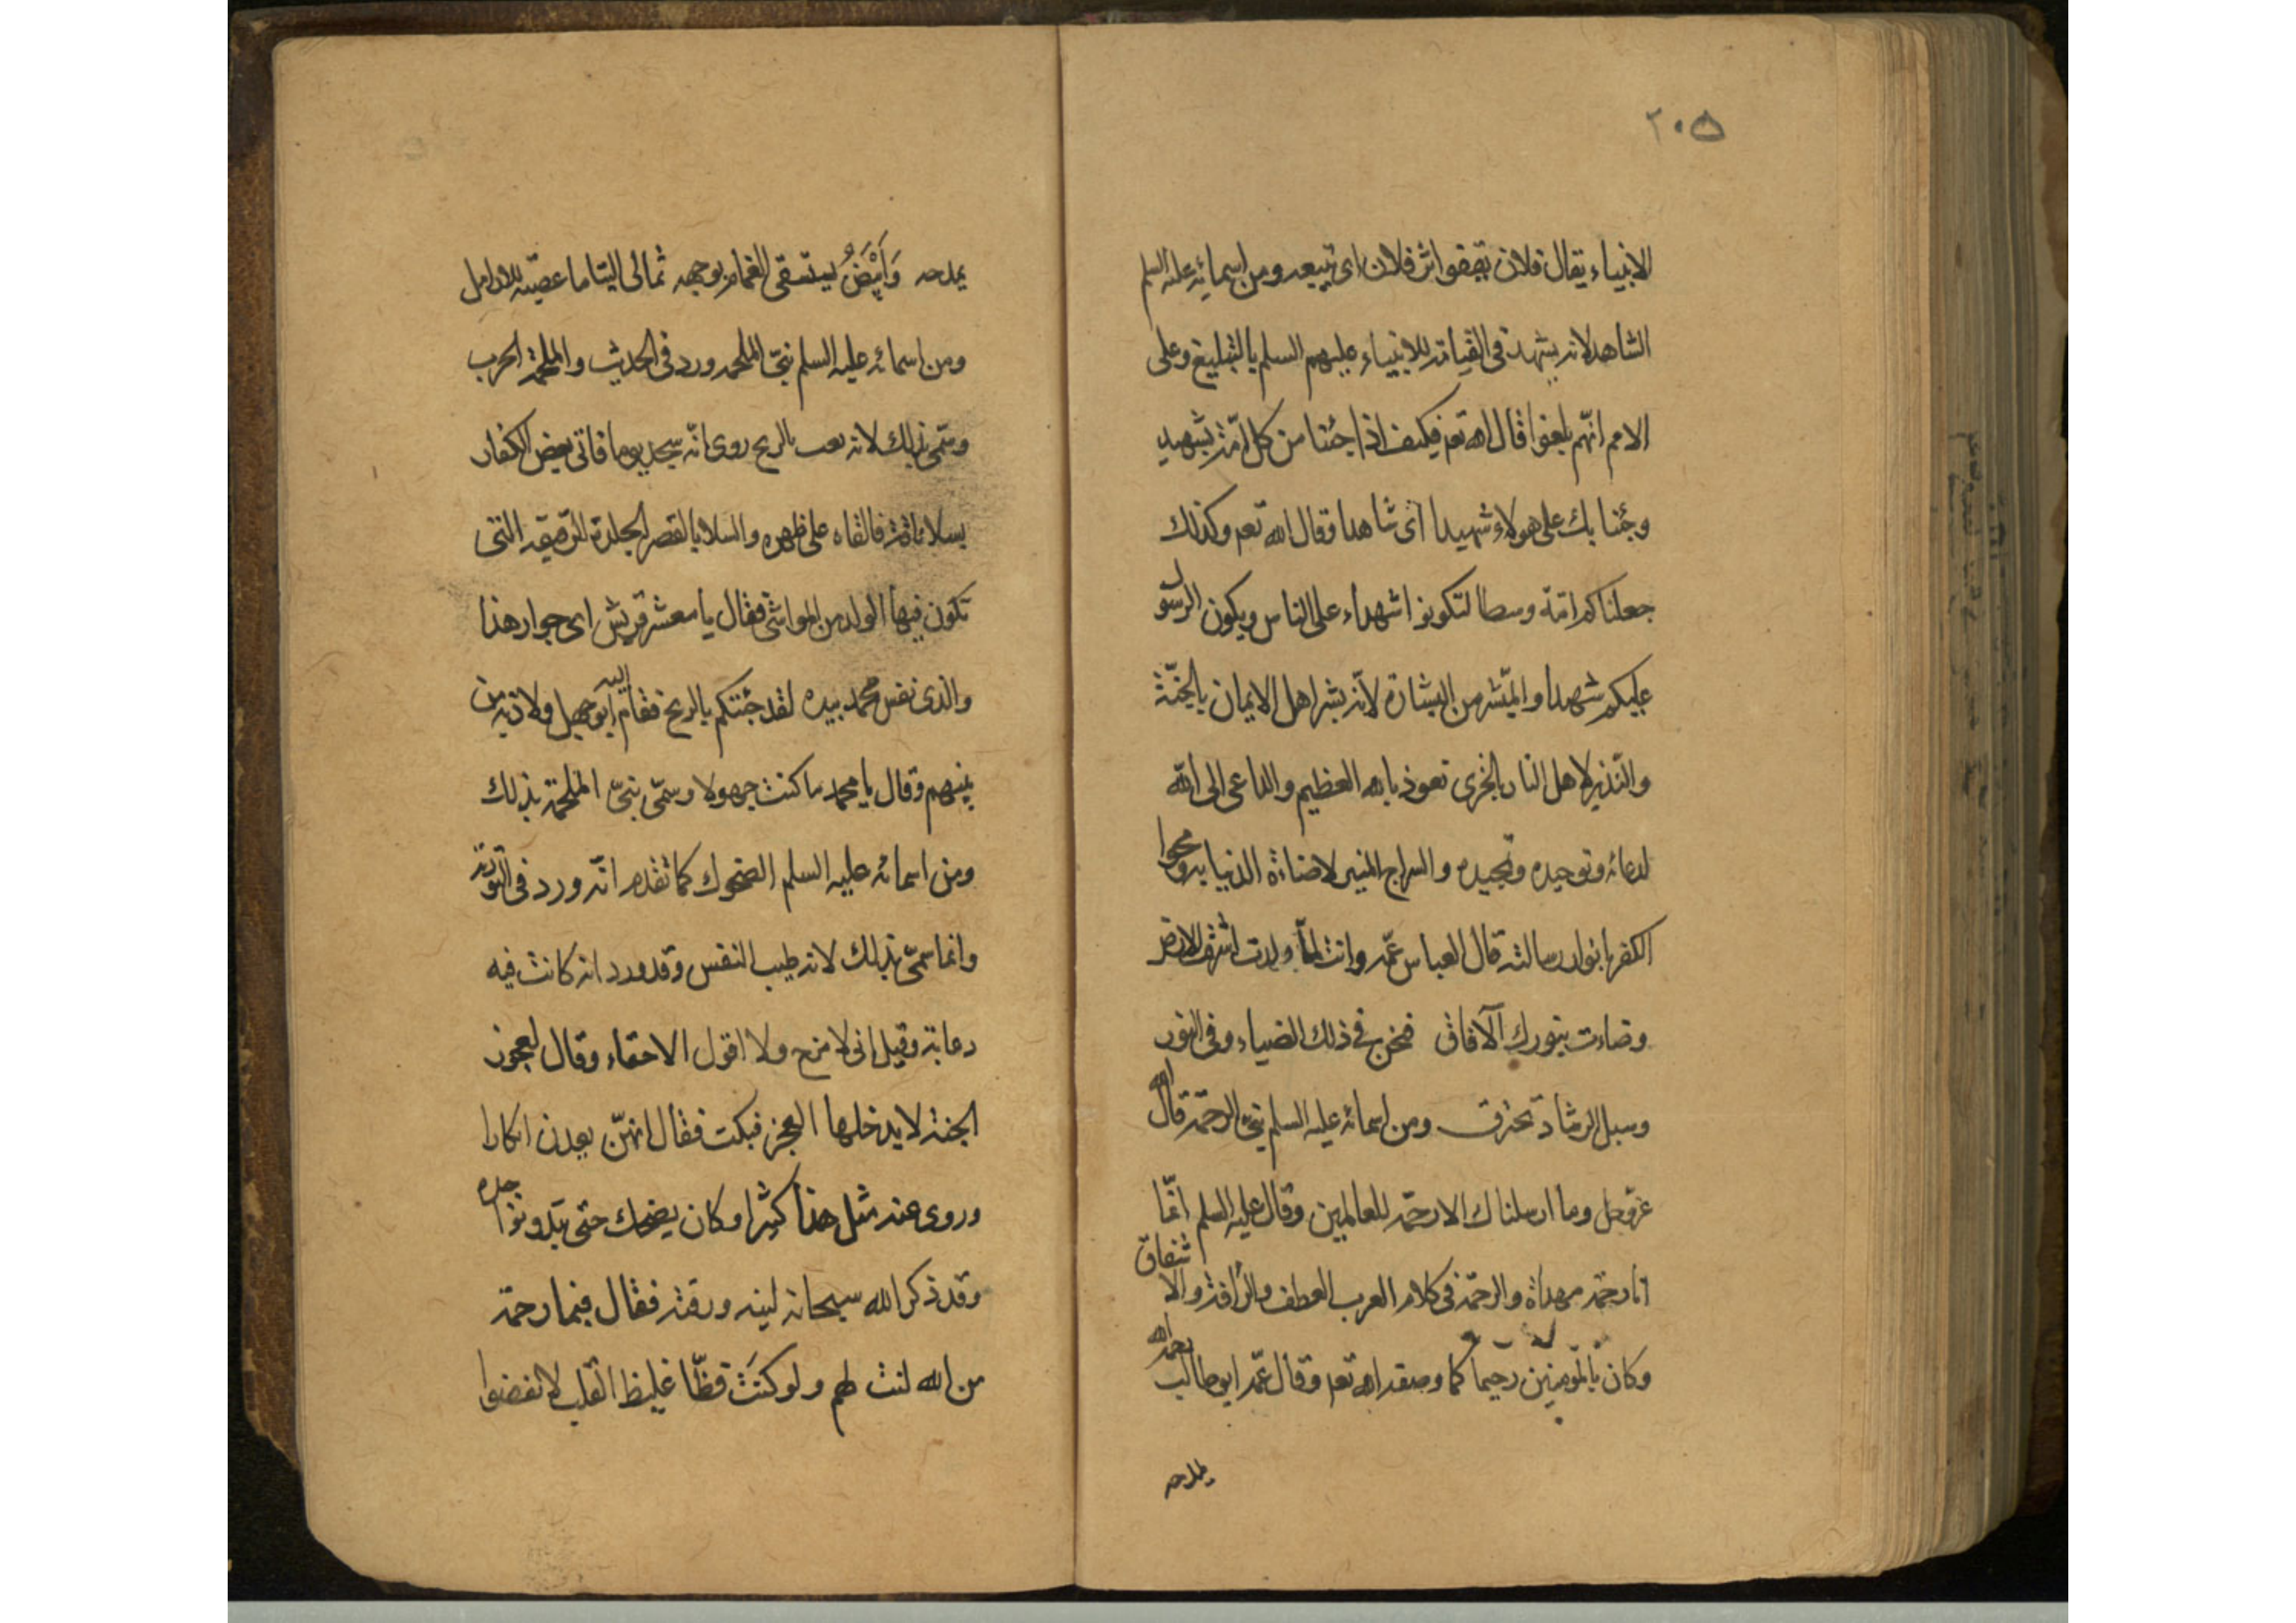 ٢٠٥
الانبياء يقال فلان يقفوا اثر فلان اى يتبعه ومن اسمائه عليه السلم
الشاهد لانه يشهد فى القيامة للانبياء عليهم السلم بالتبليغ وعلى
الامم انهم بلغوا قال الله تعم فكيف اذا جئنا من كل امّة بشهيد
وجئنا بك على هولاء شهيدا اى شاهدا وقال الله تعم وكذلك
جعلناكم امّة وسطا لتكونوا شهداء على الناس ويكون الرسول
عليكم شهيدا والمبشّر من البشارة لانّه يبشر اهل الايمان بالجنّة
والنّذير لاهل النار بالخزى نعوذ بالله العظيم والداعى الى الله
لدعائه وتوحيده وتمجيده والسراج المنير لاضاءة الدنيا به ومحوا
الكفر بانوار رسالته قال العباس عمّه وانت لمّا ولدت اشرقت الارض
وضاءت بنورك الآفاق فنحن فى ذلك الضياء وفى النور
وسبل الرشاد نخترق ومن اسمائه عليه السلم نبىّ الرحمة قال الله
عزّوجل وما ارسلناك الا رحمة للعالمين وقال عليه السلم انّما
انا رحمة مهداة والرحمة فى كلام العرب العطف والرّافة والاشفاق
وكان بالمؤمنين رحيما كما وصفه الله تعم وقال عمّه ابو طالب رحمه الله
يمدحه
يمدحه وَاَبْيَضُ يستسقى الغمام بوجهه ثمالى اليتاما عصمة للارامل
ومن اسمائه عليه السلم نبىّ الملحمة ورد فى الحديث والملحمة الحرب
وسمّى بذلك لانه بعث بالذبح روى انّه سجد يوما فاتى بعض الكفار
بسلا ناقة فالقاه على ظهره والسلا بالقصر الجلدة الرقيقه التى
تكون فيها الولد من المواشى فقال يا معشر قريش اى جوار هذا
والذى نفس محمد بيده لقد جئتكم بالذبح فقام اليه ابو جهل ولاذ به من
بينهم وقال يا محمد ما كنت جهولا وسمّى نبىّ الملحمة بذلك
ومن اسمائه عليه السلم الضحوك كما تقدم انّه ورد فى التورية
وانما سمّى بذلك لانه طيب النفس وقد ورد انه كانت فيه
دعابة وقيل انى لامزح ولا اقول الا حقاء وقال لعجوز
الجنة لا يدخلها العجز فبكت فقال انهنّ يعدن ابكارا
وروى عنه مثل هذا كثيرا وكان يضحك حتى تبدو نواجده
وقد ذكر الله سبحانه لينه ورقته فقال فبما رحمة
من الله لنت لهم ولو كنت فظّا غليظ القلب لانفضوا